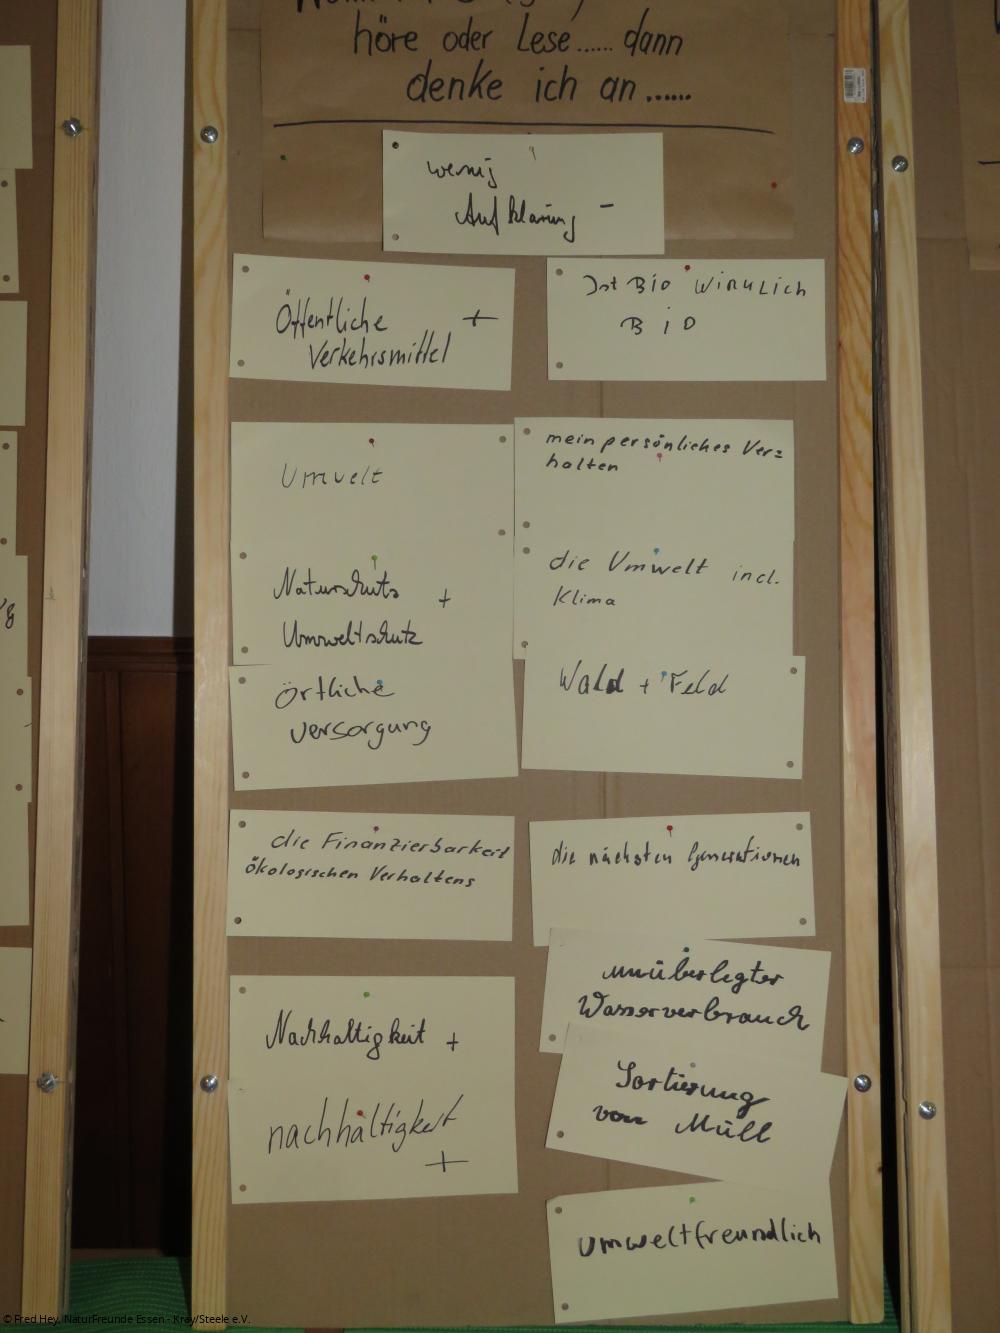 höre oder Lese...... dann
denke ich an......
wenig
Aufklärung -
Öffentliche +
Verkehrsmittel
Ist Bio WirkLich
BiO
Umwelt
mein persönliches Ver=
halten
Naturschutz +
Umweltschutz
die Umwelt incl.
Klima
örtliche
versorgung
Wald + Feld
die Finanzierbarkeit
ökologischen Verhaltens
die nächsten Generationen
unüberlegter
Wasserverbrauch
Nachhaltigkeit +
Sortierung
von Müll
nachhaltigkeit
+
umweltfreundlich
© Fred Hey, NaturFreunde Essen - Kray/Steele e.V.